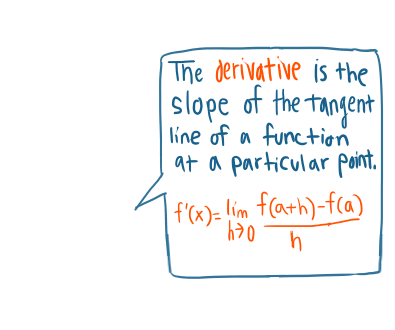 The derivative is the
slope of the tangent
line of a function
at a particular point.
f'(x)= lim h→0 f(a+h)-f(a) / h